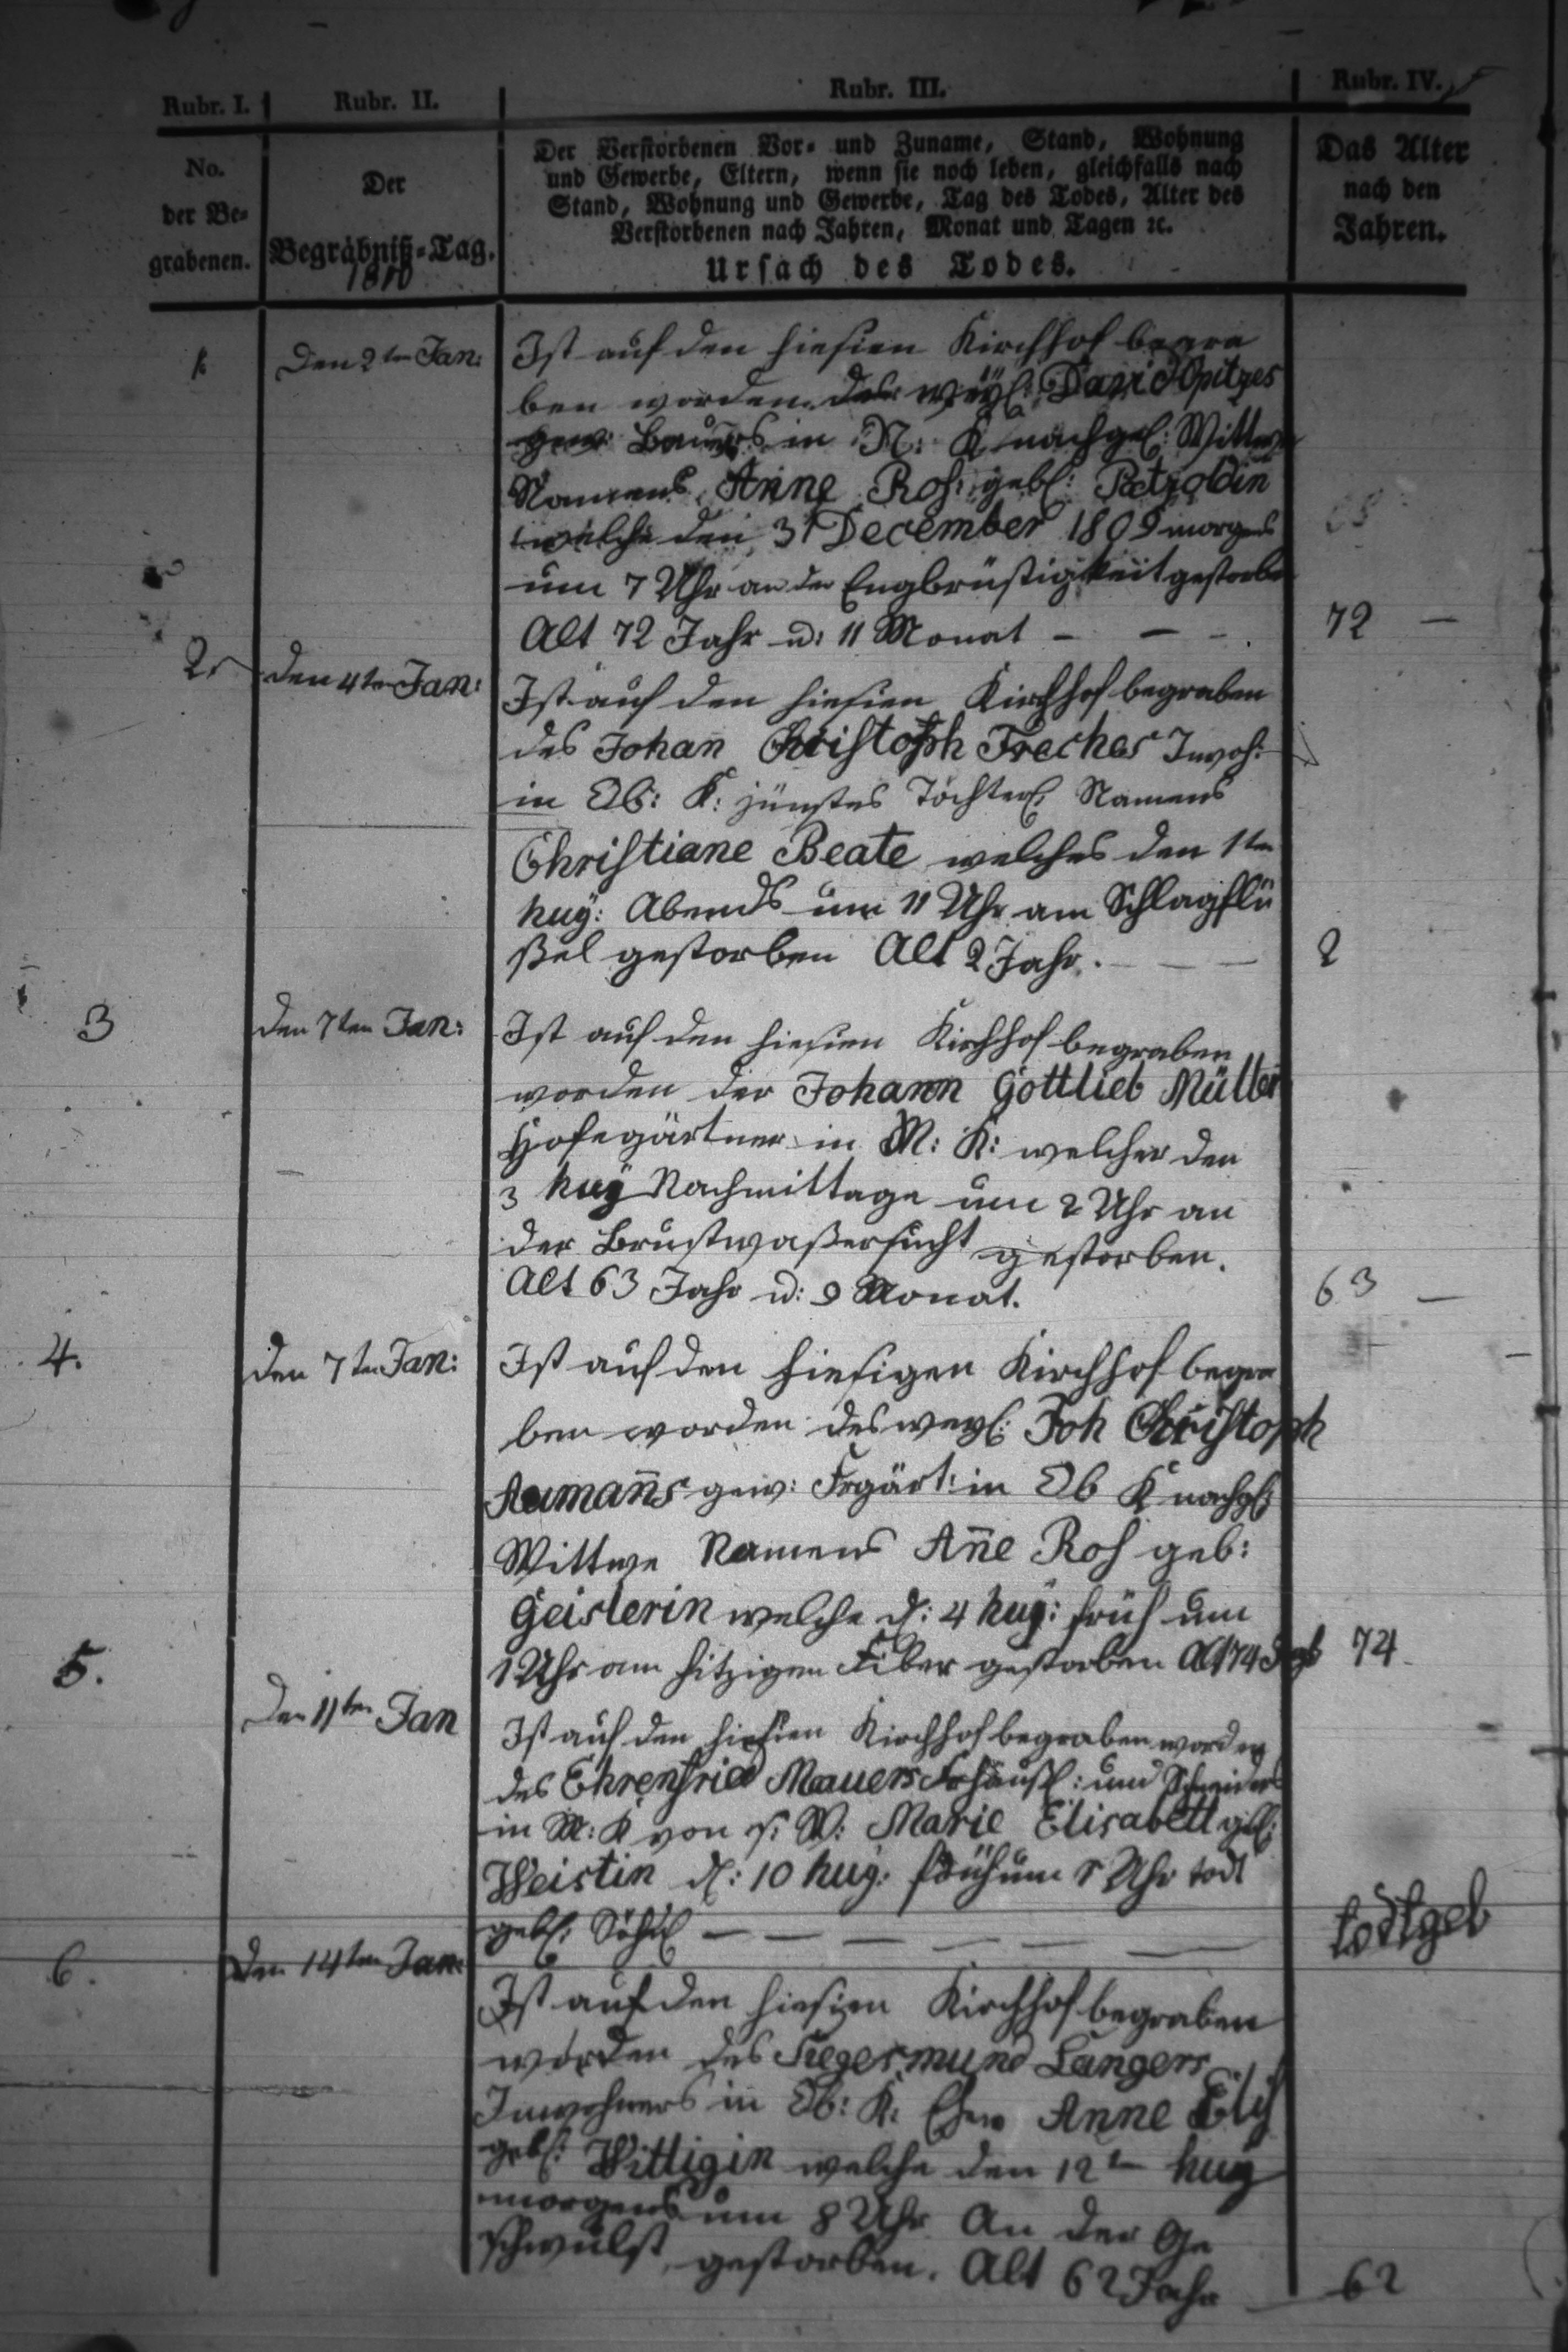 Rubr. I.
Rubr. II.
Rubr. III.
Rubr. IV.
No.
der Be=
grabenen.
Der
Begräbniß=Tag.
1810
Der Verstorbenen Vor= und Zuname, Stand, Wohnung
und Gewerbe, Eltern, wenn sie noch leben, gleichfalls nach
Stand, Wohnung und Gewerbe, Tag des Todes, Alter des
Verstorbenen nach Jahren, Monat und Tagen ꝛc.
Ursach des Todes.
Das Alter
nach den
Jahren.
1.
Den 2ten Jan:
Ist auf den hiesien Kirchhof begra
ben worden des weyl: David Opitzes
gew: Bauers in N: K nachgel: Wittwe
Namens Anne Ros: gebl: Patzoldin
welche den 31 December 1809 morgens
um 7 Uhr an der Engbrüstigkeit gestorben
Alt 72 Jahr u: 11 Monat - - -
72 -
2.
den 4ten Jan:
Ist auf den hiesien Kirchhof begraben
des Johan̄ Christoph Freches Inwoh:
in Ob: K: jüngstes Töchterl: Namens
Christiane Beate welches den 1ten
huj: Abends um 11 Uhr am Schlagflü
ßel gestorben Alt 2 Jahr. - - -
2
3
den 7ten Jan:
Ist auf den hiesien Kirchhof begraben
worden der Johann Gottlieb Müller
Hofegärtner in M: K: welcher den
3 huj Nachmittage um 2 Uhr an
der Brustwaßersucht gestorben.
Alt 63 Jahr u: 9 Monat.
63 -
4.
den 7ten Jan:
Ist auf den hiesigen Kirchhof begra
ben worden des weyl: Joh Christoph
Auman̄s gew: Frgärt: in Ob K nachgl:
Wittwe Namens An̄e Ros geb:
Geislerin welche d: 4 huj: früh um
1 Uhr am hitzigen Fiber gestorben Alt 74 Jahr
74
5.
Den 11ten Jan
Ist auf den hiesien Kirchhof begraben worden
des Ehrenfried Mauers Frhäusl: und Schneiders
in M: K von s: W: Marie Elisabett gebl:
Weistin d: 10 huj: früh um Uhr todt
gebl: Söhnl - - - - - -
todtgeb
6.
Den 14ten Jan:
Ist auf den hiesigen Kirchhof begraben
worden des Siegesmund Langers
Inwohners in Ob: K: Ehew Anne Elis
gebl: Wittigin welche den 12ten huj
morgens um 8 Uhr An der Ge
schwulst gestorben. Alt 62 Jahr
62